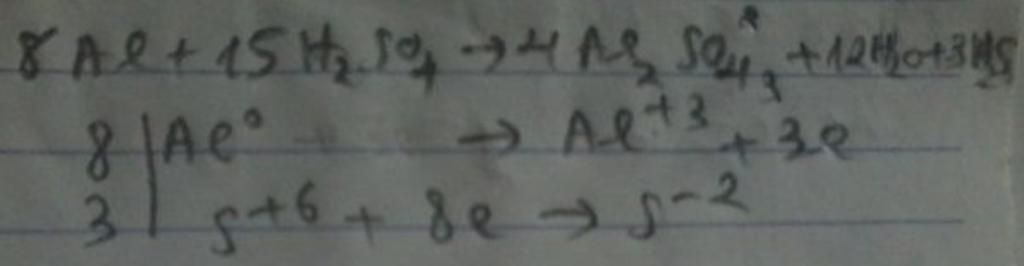 8Al + 15H₂SO₄ → 4Al₂SO₄₃ + 12H₂O + 3H₂S
8 | Al⁰ → Al⁺³ + 3e
3 | S⁺⁶ + 8e → S⁻²